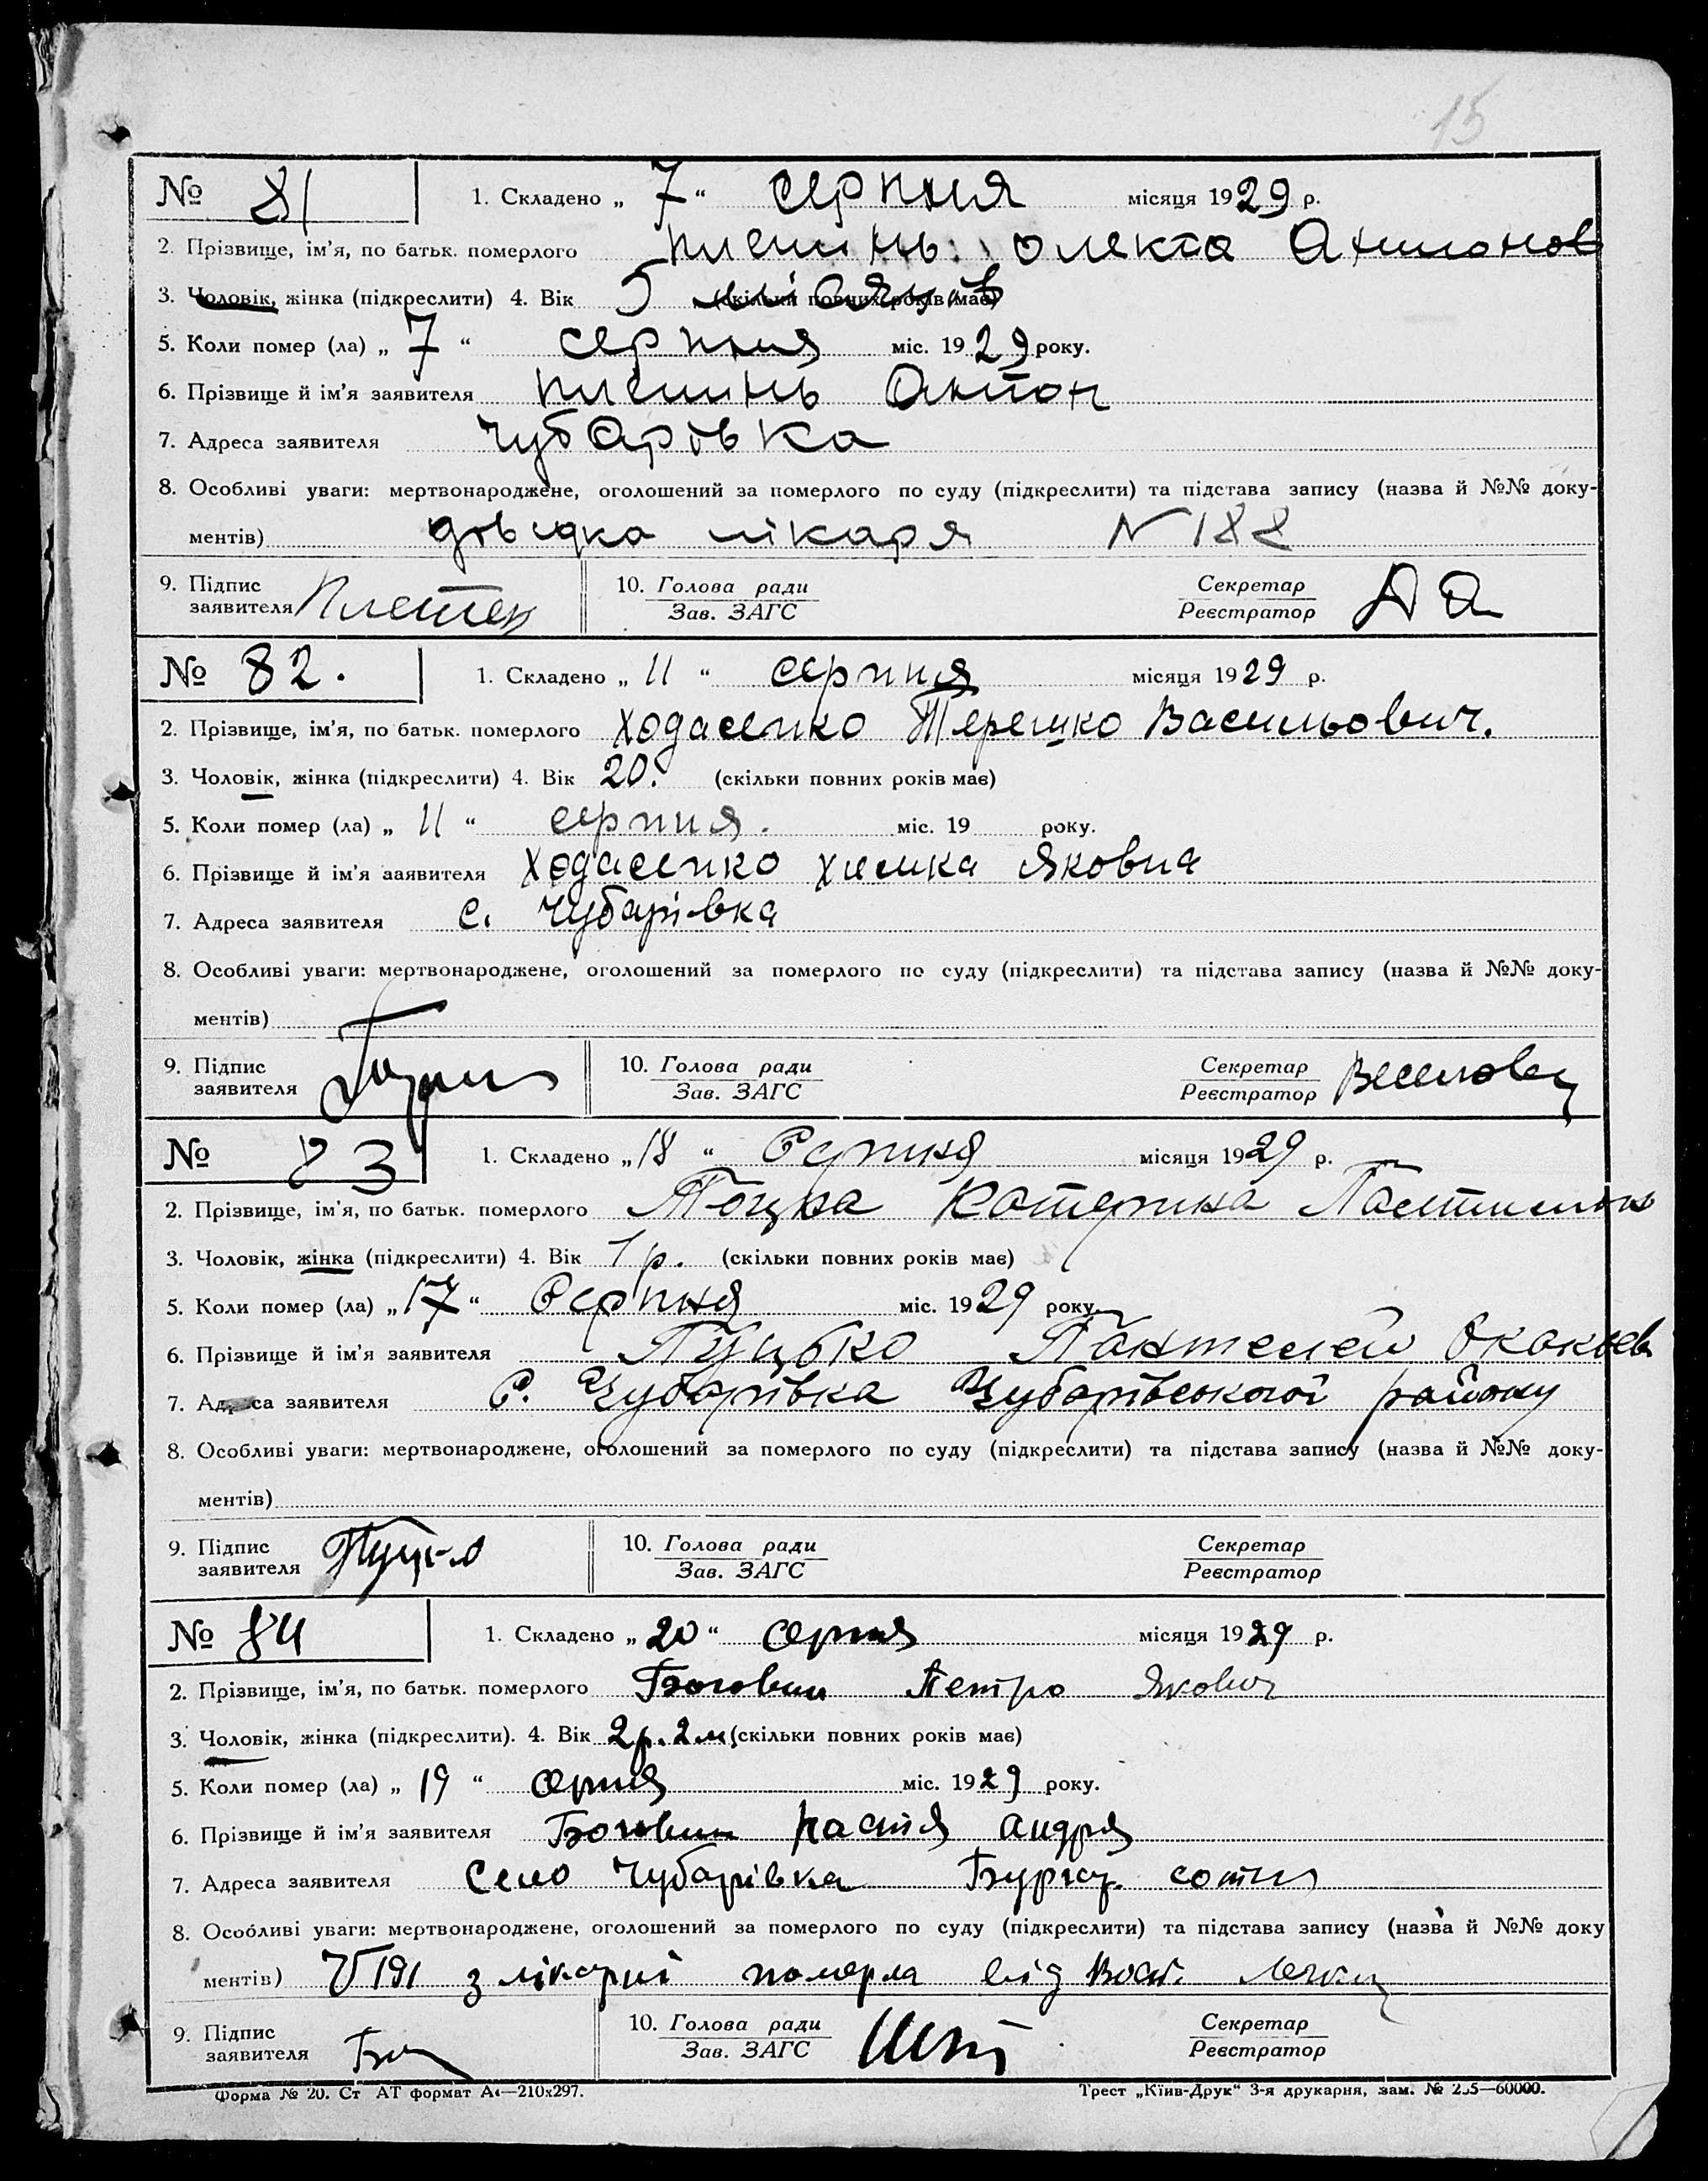 15
№ 81 1. Складено „ 7 “ серпня місяця 1929 р.
2. Прізвище, ім'я, по батьк. померлого Олекса Антонов
3. Чоловік, жінка (підкреслити) 4. Вік 5 місяців (скільки повних років має)
5. Коли помер (ла) „ 7 “ серпня міс. 1929 року.
6. Прізвище й ім'я заявителя Антон
7. Адреса заявителя Чубарівка
8. Особливі уваги: мертвонароджене, оголошений за померлого по суду (підкреслити) та підстава запису (назва й №№ доку-
ментів) довідка лікаря N 188
9. Підпис 10. Голова ради Секретар
заявителя Зав. ЗАГС Реєстратор
№ 82. 1. Складено „ 11 “ серпня місяця 1929 р.
2. Прізвище, ім'я, по батьк. померлого Ходасенко Терешко Васильович.
3. Чоловік, жінка (підкреслити) 4. Вік 20. (скільки повних років має)
5. Коли помер (ла) „ 11 “ серпня. міс. 19 року.
6. Прізвище й ім'я заявителя Ходасенко Химка Яковна
7. Адреса заявителя с. Чубарівка
8. Особливі уваги: мертвонароджене, оголошений за померлого по суду (підкреслити) та підстава запису (назва й №№ доку-
ментів)
9. Підпис 10. Голова ради Секретар
заявителя Зав. ЗАГС Реєстратор
№ 83 1. Складено „ 18 “ Серпня місяця 1929 р.
2. Прізвище, ім'я, по батьк. померлого Катерина
3. Чоловік, жінка (підкреслити) 4. Вік 1 р. (скільки повних років має)
5. Коли помер (ла) „ 17 “ Серпня міс. 1929 року.
6. Прізвище й ім'я заявителя Пуцько Пантелей
7. Адреса заявителя С. Чубарівка Чубарівської району
8. Особливі уваги: мертвонароджене, оголошений за померлого по суду (підкреслити) та підстава запису (назва й №№ доку-
ментів)
9. Підпис 10. Голова ради Секретар
заявителя Зав. ЗАГС Реєстратор
№ 84 1. Складено „ 20 “ серпня місяця 1929 р.
2. Прізвище, ім'я, по батьк. померлого Петро Якович
3. Чоловік, жінка (підкреслити). 4. Вік 2р. 2м. (скільки повних років має)
5. Коли помер (ла) „ 19 “ серпня міс. 1929 року.
6. Прізвище й ім'я заявителя
7. Адреса заявителя Село Чубарівка сотня
8. Особливі уваги: мертвонароджене, оголошений за померлого по суду (підкреслити) та підстава запису (назва й №№ доку
ментів) 191 з лікарні померла від
9. Підпис 10. Голова ради Секретар
заявителя Зав. ЗАГС Реєстратор
Форма № 20. Ст АТ формат А4—210х297. Трест „Київ-Друк“ 3-я друкарня, зам. № 235—60000.